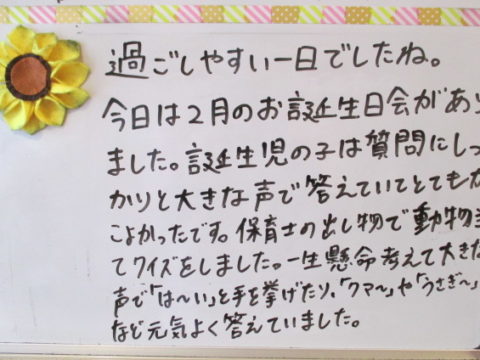 過ごしやすい一日でしたね。
今日は2月のお誕生日会があり
ました。誕生児の子は質問にしっ
かりと大きな声で答えていてとてもか
こよかったです。保育士の出し物で動物当
てクイズをしました。一生懸命考えて大きな
声で「は〜い」と手を挙げたり、「クマ〜」や「うさぎ〜」
など元気よく答えていました。